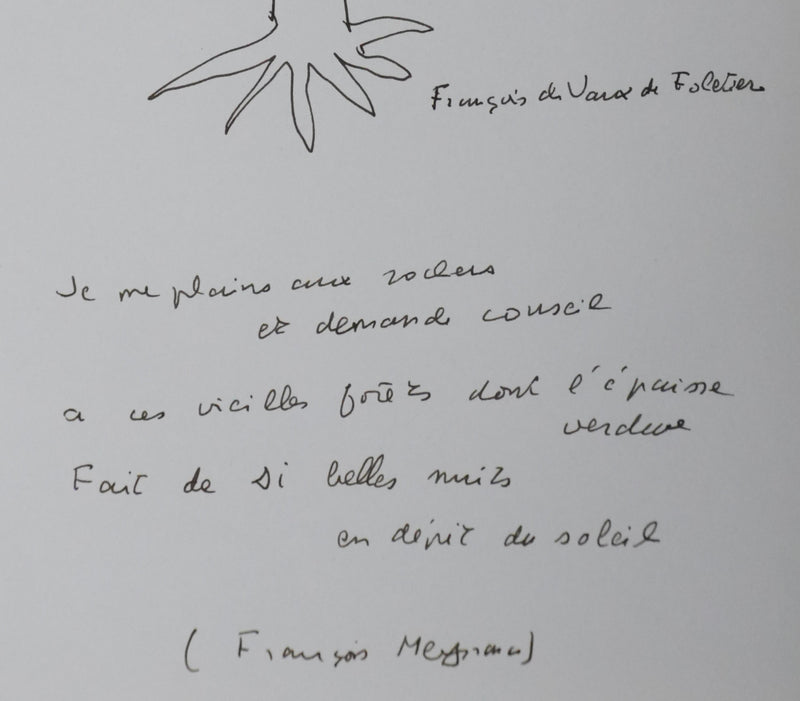 François de Vaux de Foletier
Je me plains aux rochers
et demande conseil
a ces vieilles forêts dont l'épaisse
verdure
Fait de si belles nuits
en dépit du soleil
(François Meynard)